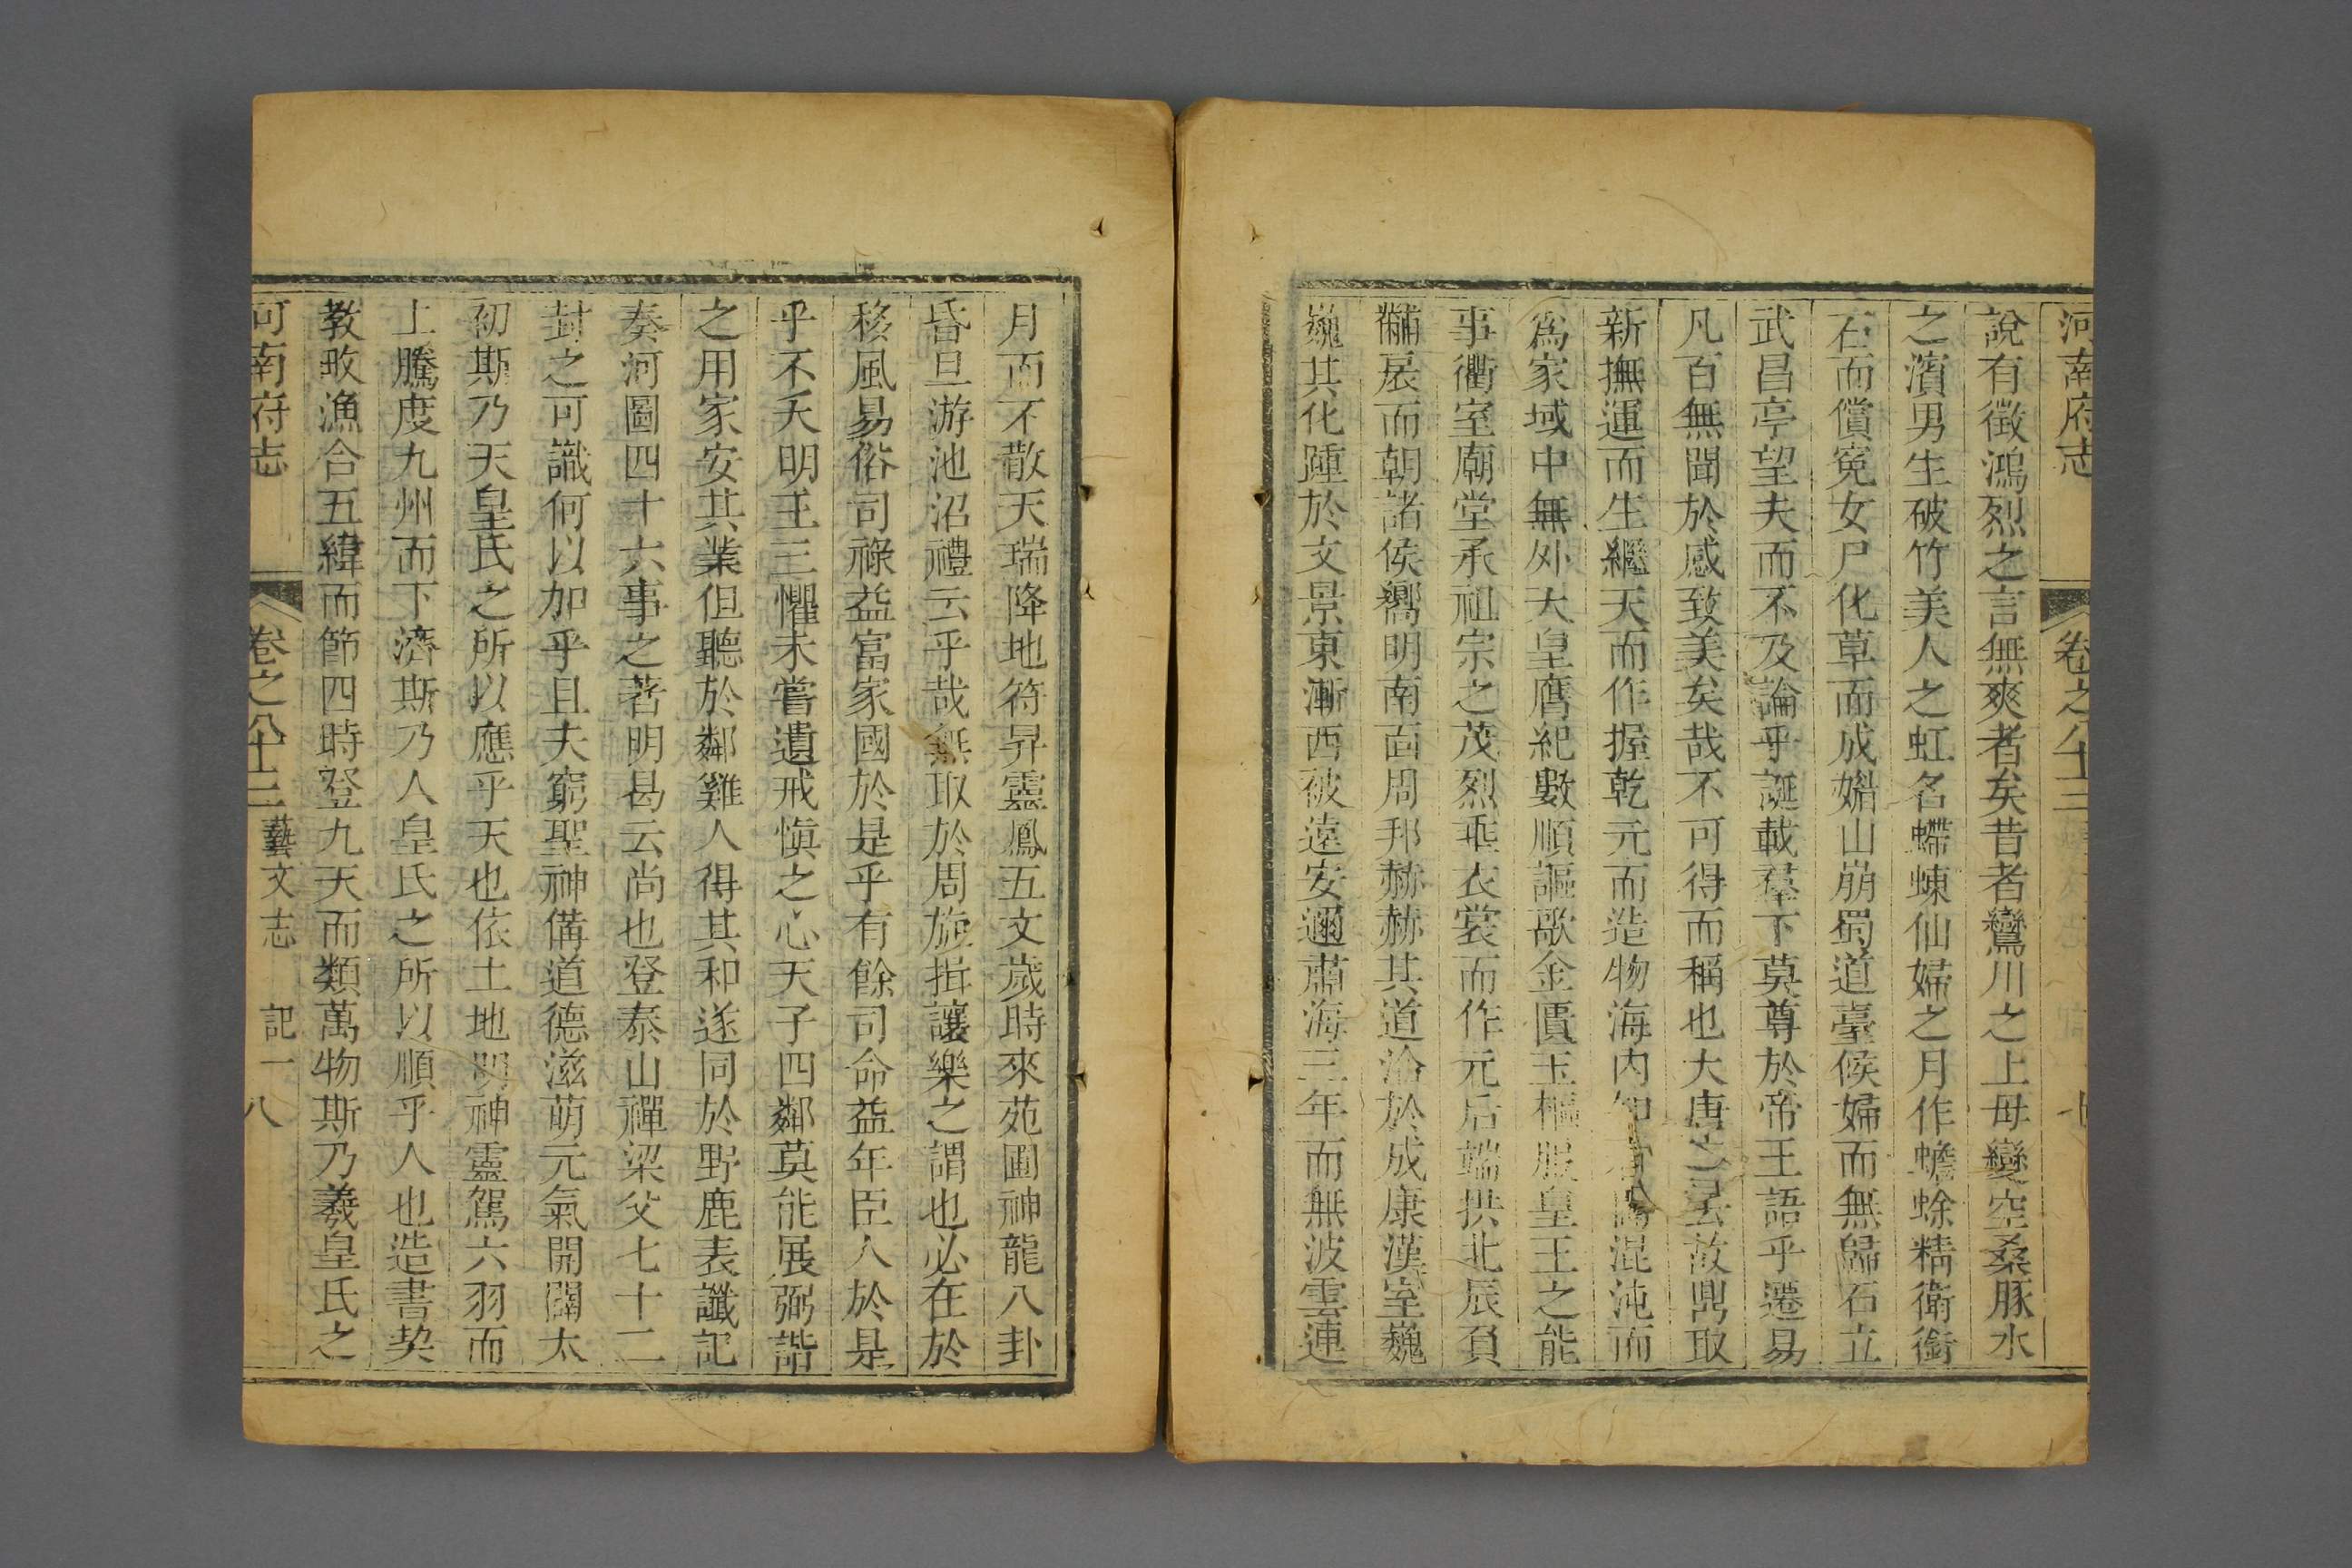 河南府志　卷之八十三　七
說有徵鴻烈之言無爽者矣昔者鸞川之上母變空桑豚水
之濱男生破竹美人之虹名蝃蝀仙婦之月作蟾蜍精衛銜
石而償寃女尸化草而成媚山崩蜀道臺候婦而無歸石立
武昌亭望夫而不及論乎誕載羣下莫尊於帝王語乎遷易
凡百無聞於感致美矣哉不可得而稱也大唐之云故鼎取
新撫運而生繼天而作握乾元而造物海內知混沌而
爲家域中無外大皇膺紀數順謳歌金匱玉樞服皇王之能
事衢室廟堂承祖宗之茂烈垂衣裳而作元后端拱北辰負
黼扆而朝諸侯嚮明南面周邦赫赫其道洽於成康漢室巍
巍其化踵於文景東漸西被遠安邇肅海三年而無波雲連
月而不散天瑞降地符昇靈鳳五文歲時來苑囿神龍八卦
昏旦游池沼禮云乎哉無取於周旋揖讓樂之謂也必在於
移風易俗司祿益富家國於是乎有餘司命益年臣人於是
乎不夭明王三懼未嘗遺戒愼之心天子四鄰莫能展弼諧
之用家安其業但聽於鄰雞人得其和遂同於野鹿表讖記
奏河圖四十六事之著明曷云尚也登泰山禪梁父七十二
封之可識何以加乎且夫窮聖神備道德滋萌元氣開闢太
初斯乃天皇氏之所以應乎天也依土地明神靈駕六羽而
上騰度九州而下濟斯乃人皇氏之所以順乎人也造書契
教畋漁合五緯而節四時登九天而類萬物斯乃羲皇氏之
河南府志　卷之八十三　藝文志　記一　八